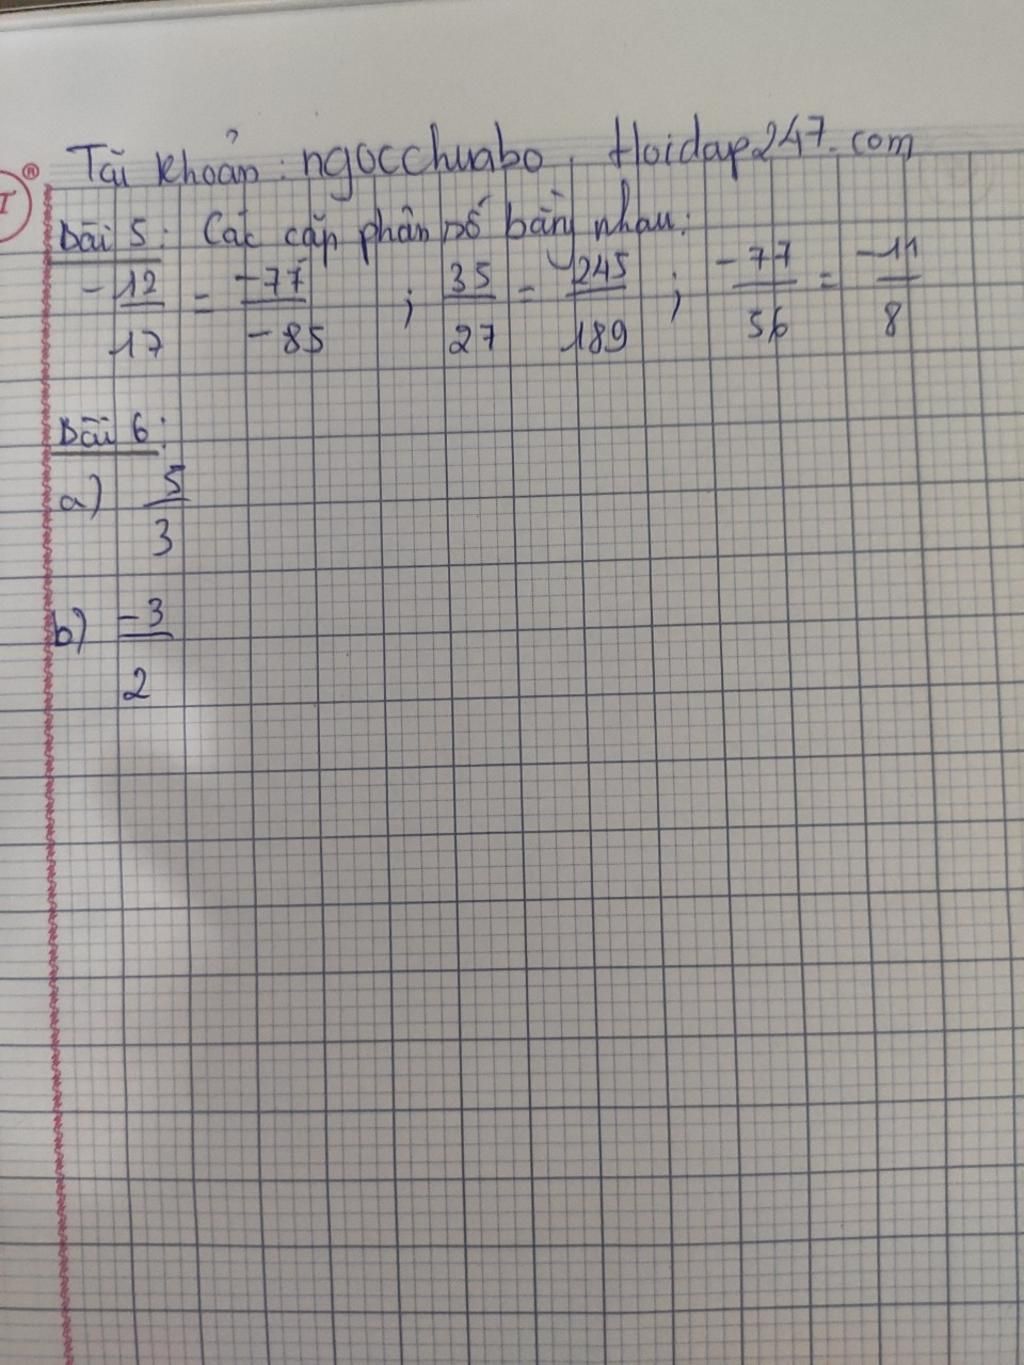 I ®
Tài khoản: ngocchuabo, Hoidap247.com
Bài 5: Các cặp phân số bằng nhau:
-12/17 = -77/-85 ; 35/27 = 245/189 ; -77/56 = -11/8
Bài 6:
a) 5/3
b) -3/2